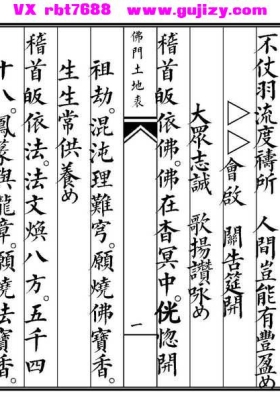 VX rbt7688 www.gujizy.com
不仗羽流度禱所 人間豈能有豐盈め
▷▷會啟 關告筵開
大眾志誠 歌揚讚咏め
稽首皈依佛。佛在杳冥中。恍惚開
佛門土地表
一
祖劫。混沌理難穹。願燒佛寶香。
生生常供養め
稽首皈依法。法文煥八方。五千四
十八。鳳篆與龍章。願燒法寶香。